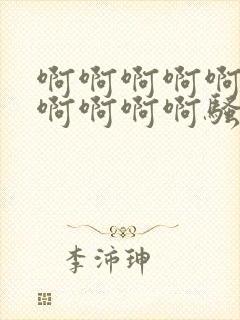 啊啊啊啊啊
啊啊啊啊骚
李沛珅